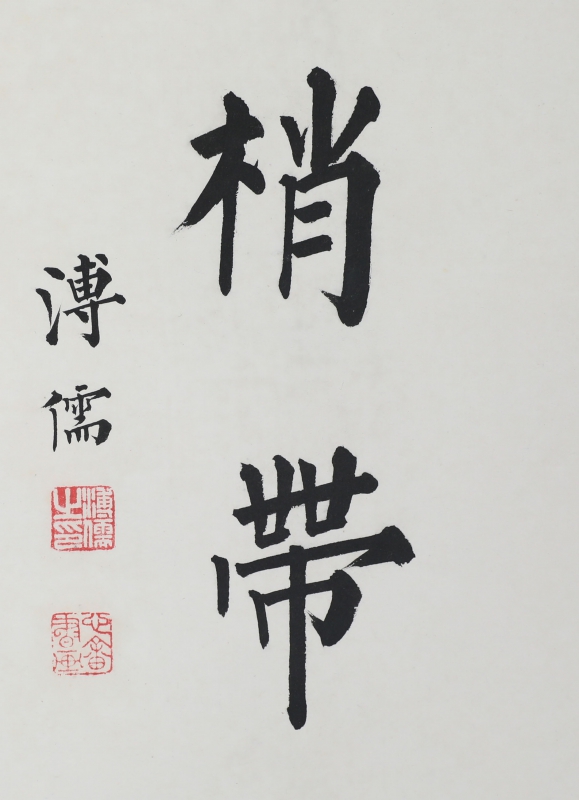 梢帶
溥儒
溥儒之印